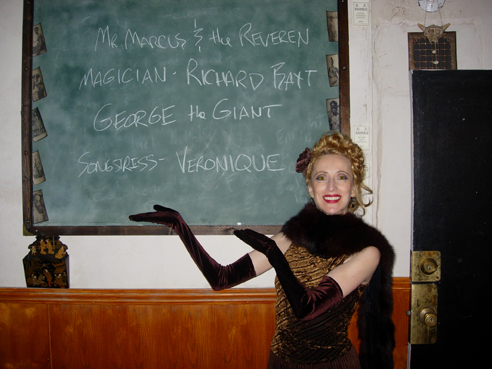 Mr Marcus & the Reveren
MAGICIAN - RICHARD
GEORGE the GIANT
SONGSTRISS - VERONIQUE